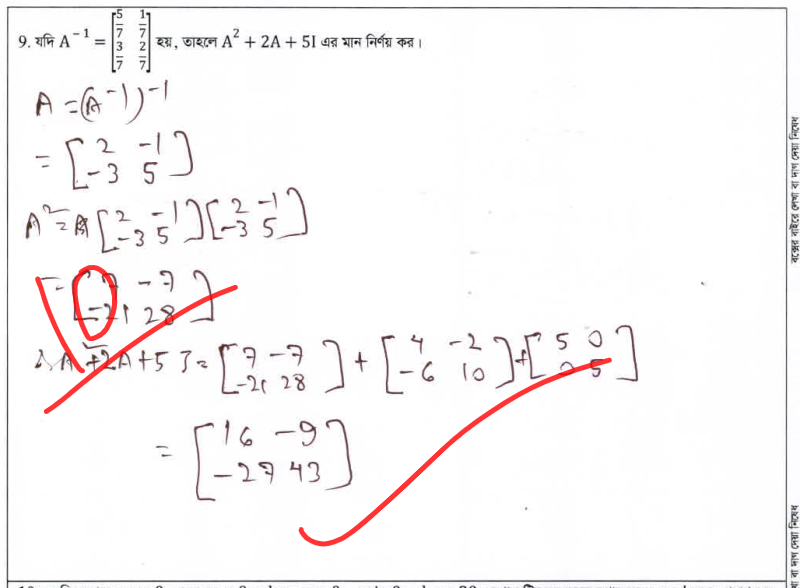 9. যদি A⁻¹ = [5/7 1/7; 3/7 2/7] হয়, তাহলে A² + 2A + 5I এর মান নির্ণয় কর।
A = (A⁻¹)⁻¹
= [2 -1; -3 5]
A² = [2 -1; -3 5] [2 -1; -3 5]
= [7 -7; -21 28]
∴ A² + 2A + 5I = [7 -7; -21 28] + [4 -2; -6 10] + [5 0; 0 5]
= [16 -9; -27 43]
বক্সের বাইরে লেখা বা দাগ দেয়া নিষেধ
বা দাগ দেয়া নিষেধ